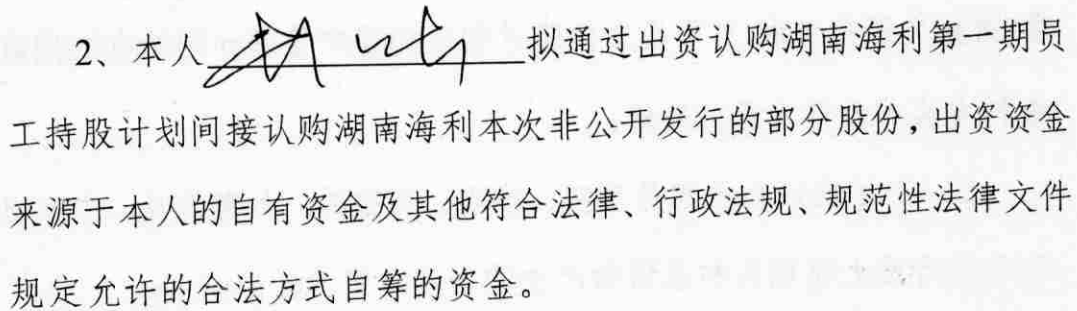 2、本人 拟通过出资认购湖南海利第一期员
工持股计划间接认购湖南海利本次非公开发行的部分股份，出资资金
来源于本人的自有资金及其他符合法律、行政法规、规范性法律文件
规定允许的合法方式自筹的资金。